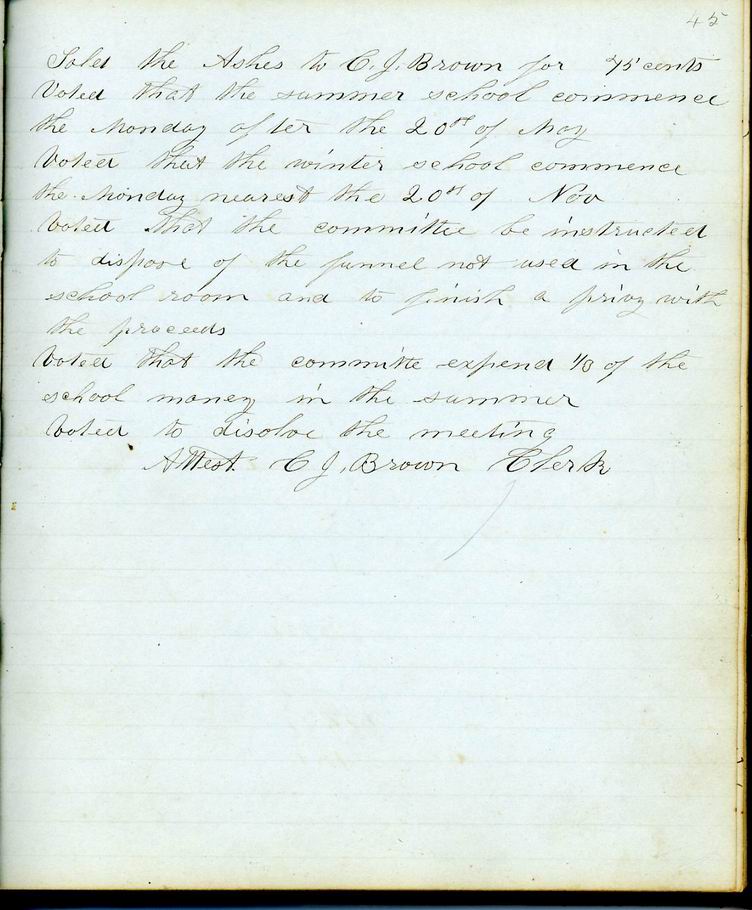 45
Sold the Ashes to C. J. Brown for 75 cents
Voted that the summer school commence
the Monday after the 20th of May
Voted that the winter school commence
the Monday nearest the 20th of Nov
Voted that the committee be instructed
to dispose of the funnel not used in the
school room and to finish a privy with
the proceeds
Voted that the committe expend 1/3 of the
school money in the summer
Voted to disolve the meeting
Attest C J. Brown Clerk